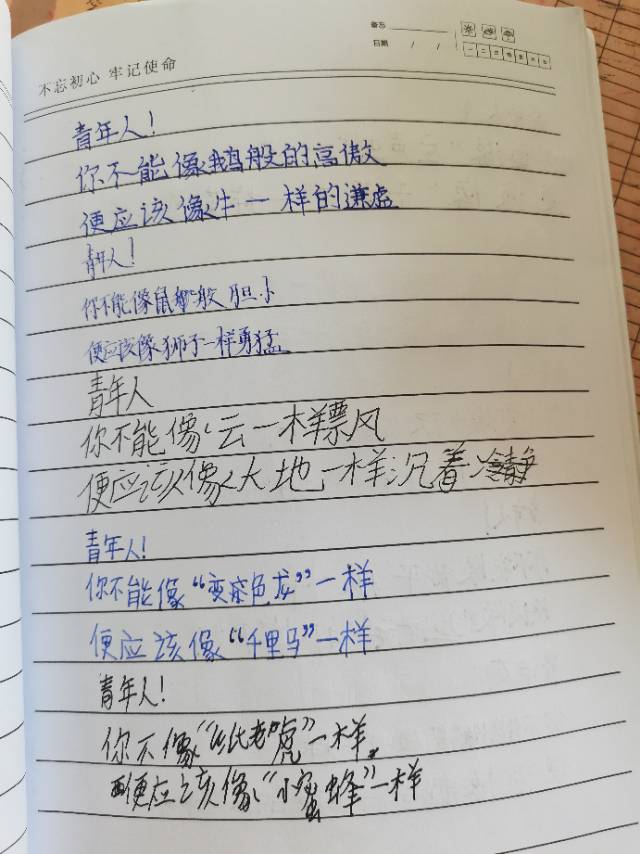 备忘
日期 / /
一 二 三 四 五 六 日
不忘初心 牢记使命
青年人!
你不能像鹅般的高傲
便应该像牛一样的谦虚
青年人!
你不能像鼠般胆小
便应该像狮子一样勇猛
青年人
你不能像云一样票风
便应该像大地一样沉着冷静
青年人!
你不能像“变色龙”一样
便应该像“千里马”一样
青年人!
你不像“纸老虎”一样
便应该像“小蜜蜂”一样